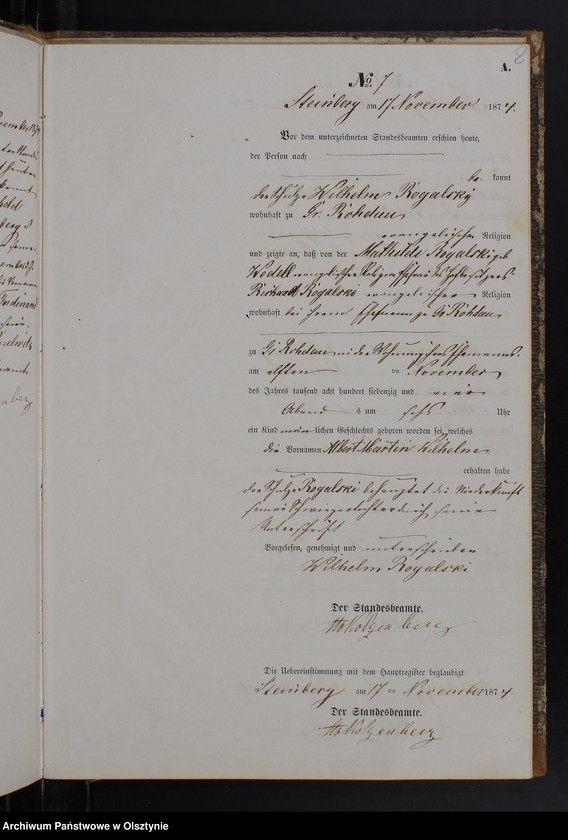 8
A.
No. 7
Steinberg am 17 November 1874.
Vor dem unterzeichneten Standesbeamten erschien heute,
der Person nach
be kannt
der Schulze Wilhelm Rogalski
wohnhaft zu Gr. Rohdau
evangelischer Religion
und zeigte an, daß von der Mathilde Rogalski geb
evangelischer Religion Ehefrau des
Richard Rogalski evangelischer Religion
wohnhaft bei ihrem Ehemann zu Gr Rohdau
zu Gr Rohdau in der Wohnung ihres Ehemannes
am elften ten November
des Jahres tausend acht hundert siebenzig und vier
Abend s um sechs Uhr
ein Kind männlichen Geschlechts geboren worden sei, welches
die Vornamen Albert Martin Wilhelm
erhalten habe
der Schulze Rogalski behauptet die Niederkunft
seiner Schwiegertochter durch seine
Unterschrift
Vorgelesen, genehmigt und unterschrieben
Wilhelm Rogalski
Der Standesbeamte.
Die Uebereinstimmung mit dem Hauptregister beglaubigt
Steinberg am 17 ten November 1874
Der Standesbeamte.
Archiwum Państwowe w Olsztynie